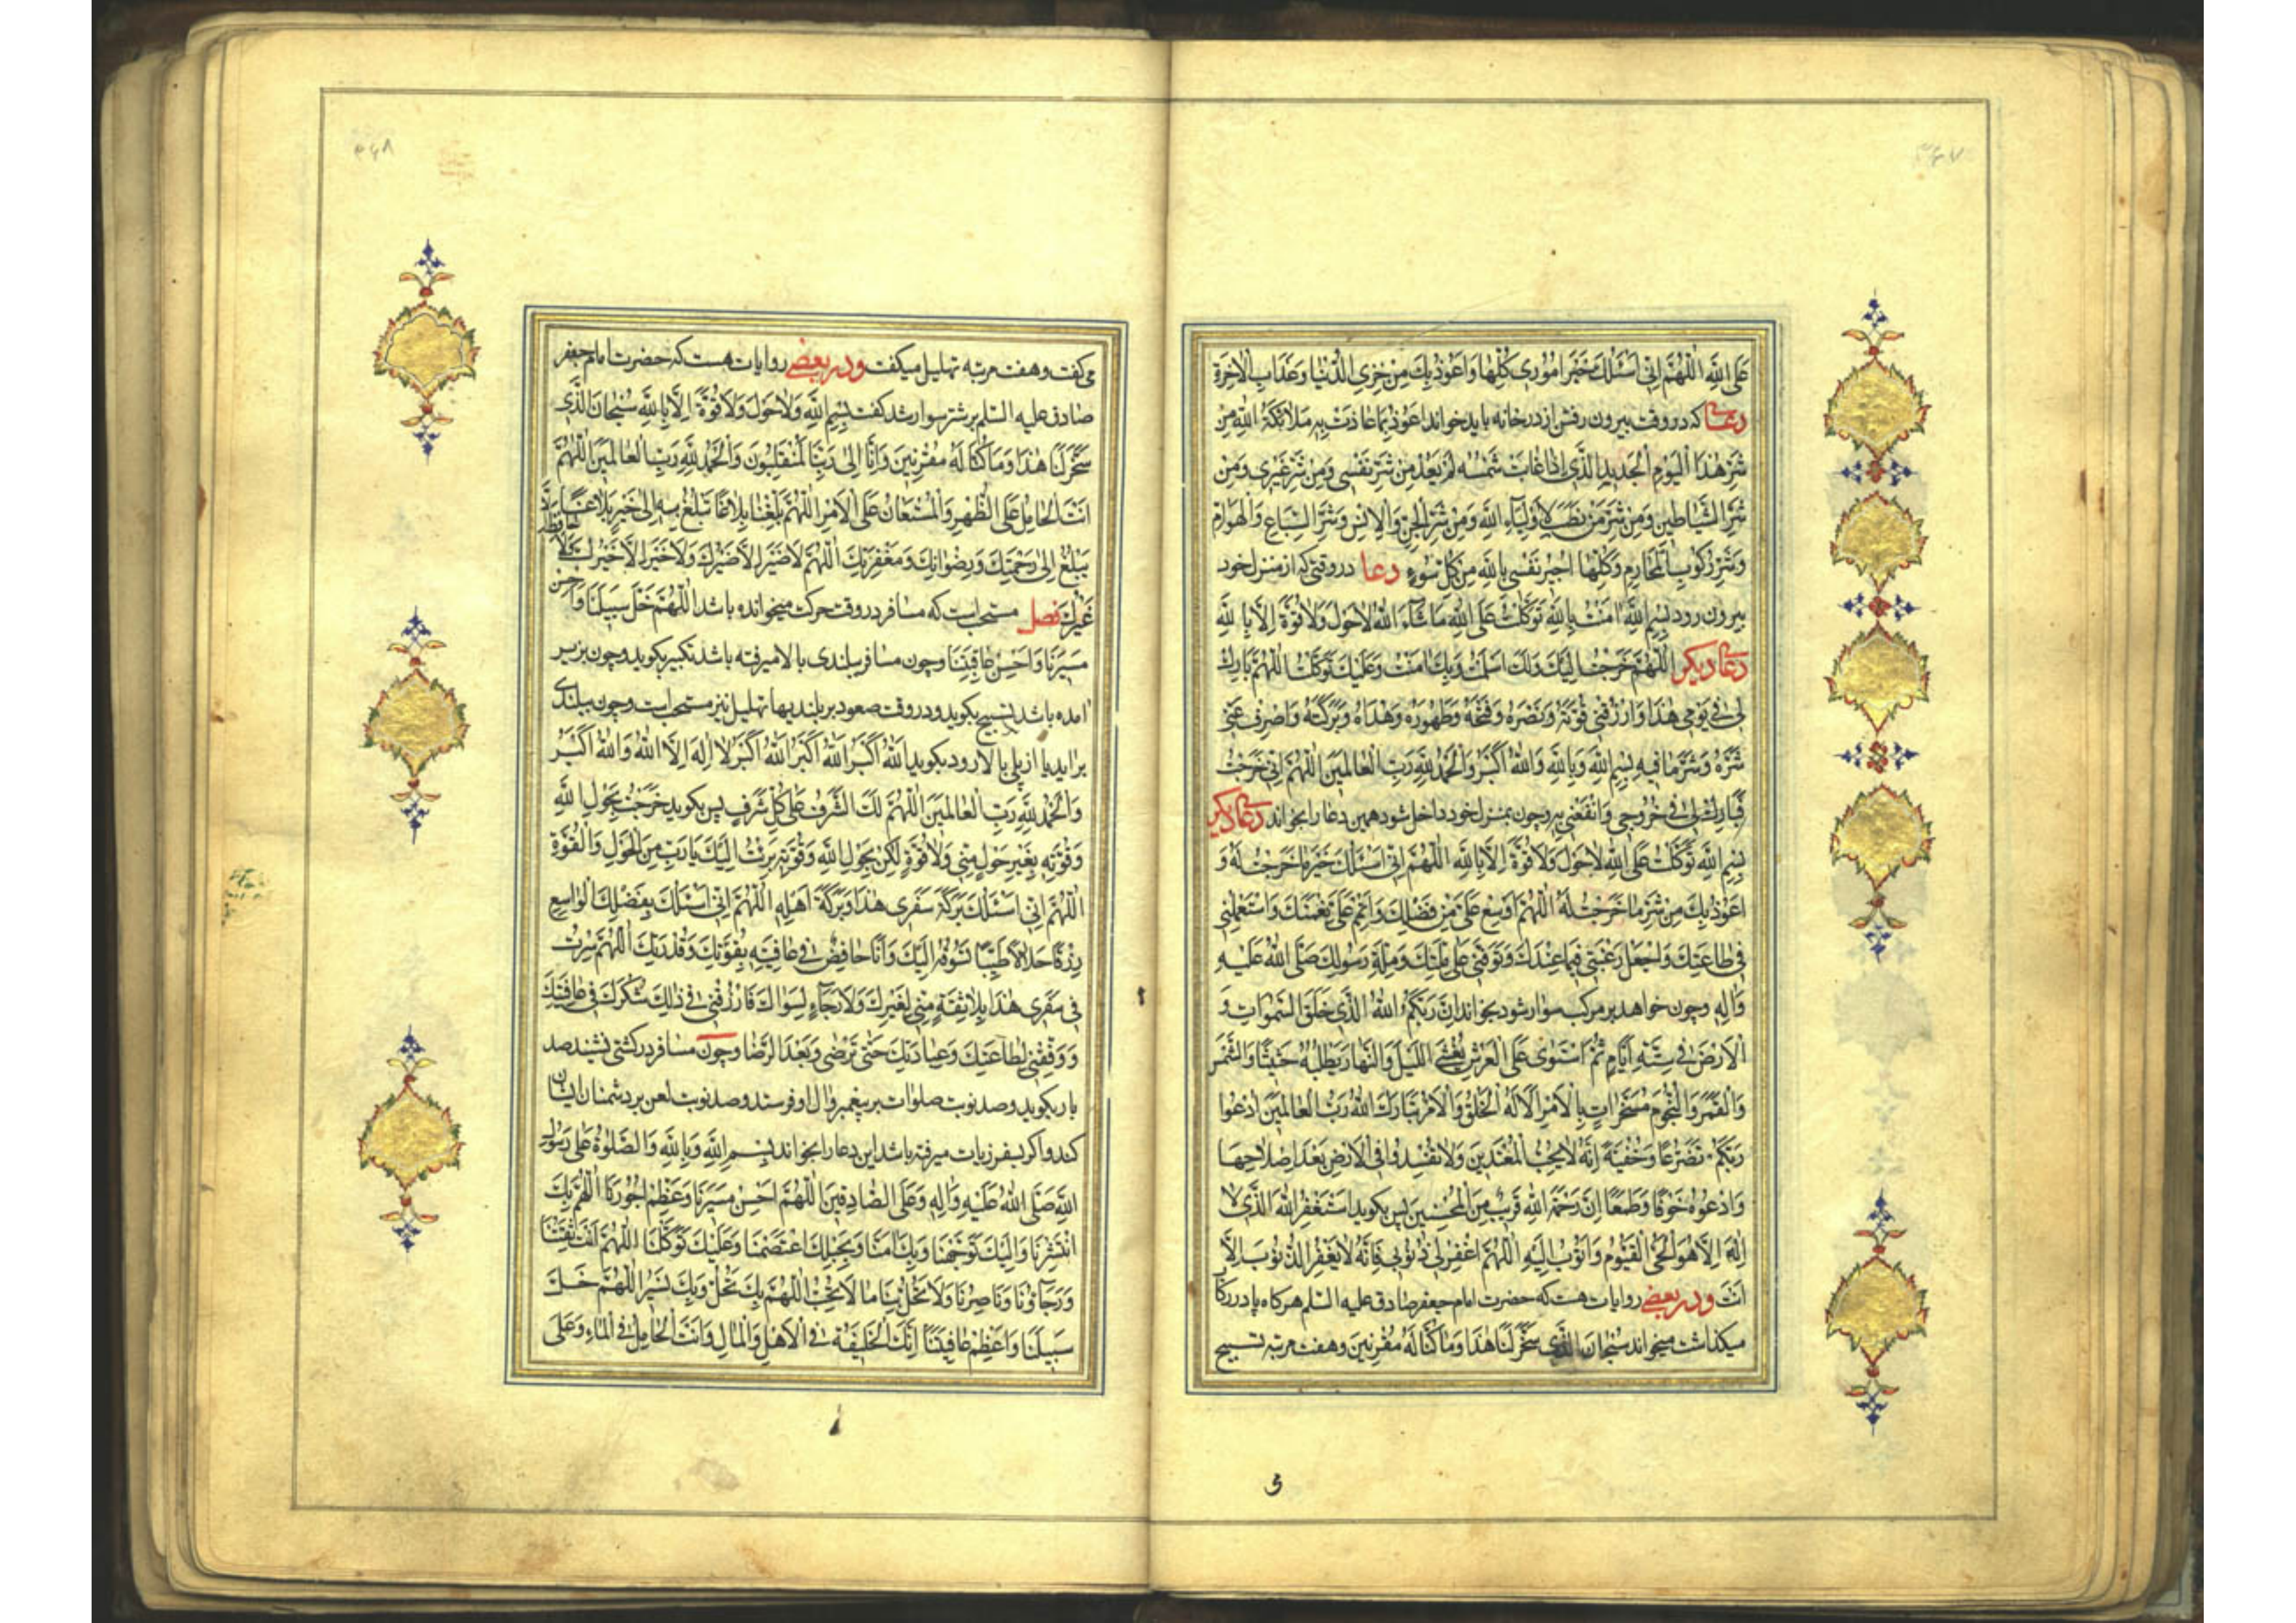 ۳۶۷
عَلَى اللهِ اَللّهُمَّ اِنّى اَسْئَلُكَ خَيْرَ اُمُورى كُلِّها وَاَعُوذُ بِكَ مِنْ خِزْىِ الدُّنْيا وَعَذابِ الْاخِرَةِ
دعائی که در وقت بیرون رفتن از در خانه باید خواند اَعُوذُ بِما عاذَتْ بِهِ مَلائِكَةُ اللهِ مِنْ
شَرِّ هذَا الْيَوْمِ الْجَديدِ الَّذى اِذا غابَتْ شَمْسُهُ لَمْ يَعُدْ مِنْ شَرِّ نَفْسى وَمِنْ شَرِّ غَيْرى وَمِنْ
شَرِّ الشَّياطينِ وَمِنْ شَرِّ مَنْ نَصَبَ لِاَوْلِياءِ اللهِ وَمِنْ شَرِّ الْجِنِّ وَالْاِنْسِ وَشَرِّ السِّباعِ وَالْهَوامِّ
وَشَرِّ رُكُوبِ الْمَحارِمِ وَكُلِّها اُجيرُ نَفْسى بِاللهِ مِنْ كُلِّ سُوءٍ دعا در وقتی که از منزل خود
بیرون رود بِسْمِ اللهِ امَنْتُ بِاللهِ تَوَكَّلْتُ عَلَى اللهِ ماشاءَ اللهُ لا حَوْلَ وَلا قُوَّةَ اِلّا بِاللهِ
دعاء دیگر اَللّهُمَّ خَرَجْتُ اِلَيْكَ وَلَكَ اَسْلَمْتُ وَبِكَ امَنْتُ وَعَلَيْكَ تَوَكَّلْتُ اَللّهُمَّ بارِكْ
لى فى يَوْمى هذا وَارْزُقْنى قُوَّتَهُ وَنَصْرَهُ وَفَتْحَهُ وَطَهُورَهُ وَهُداهُ وَبَرَكَتَهُ وَاصْرِفْ عَنّى
شَرَّهُ وَشَرَّ ما فيهِ بِسْمِ اللهِ وَبِاللهِ وَاللهُ اَكْبَرُ وَالْحَمْدُ لِلّهِ رَبِّ الْعالَمينَ اَللّهُمَّ اِنّى خَرَجْتُ
فَبارِكْ لى فى خُرُوجى وَانْفَعْنى بِهِ وچون بمنزل خود داخل شود همین دعا را بخواند دعاء دیگر
بِسْمِ اللهِ تَوَكَّلْتُ عَلَى اللهِ لا حَوْلَ وَلا قُوَّةَ اِلّا بِاللهِ اَللّهُمَّ اِنّى اَسْئَلُكَ خَيْرَ ما خَرَجْتُ لَهُ وَ
اَعُوذُ بِكَ مِنْ شَرِّ ما خَرَجْتُ لَهُ اَللّهُمَّ اَوْسِعْ عَلَىَّ مِنْ فَضْلِكَ وَاَتْمِمْ عَلَىَّ نِعْمَتَكَ وَاسْتَعْمِلْنى
فى طاعَتِكَ وَاجْعَلْ رَغْبَتى فيما عِنْدَكَ وَتَوَفَّنى عَلى مِلَّتِكَ وَمِلَّةِ رَسُولِكَ صَلَّى اللهُ عَلَيْهِ
وَالِهِ وچون خواهد بر مرکب سوار شود بخواند اِنَّ رَبَّكُمُ اللهُ الَّذى خَلَقَ السَّمواتِ وَ
الْاَرْضَ فى سِتَّةِ اَيّامٍ ثُمَّ اسْتَوى عَلَى الْعَرْشِ يُغْشِى اللَّيْلَ وَالنَّهارَ يَطْلُبُهُ حَثيثًا وَالشَّمْسَ
وَالْقَمَرَ وَالنُّجُومَ مُسَخَّراتٍ بِالْاَمْرِ اَلا لَهُ الْخَلْقُ وَالْاَمْرُ تَبارَكَ اللهُ رَبُّ الْعالَمينَ اُدْعُوا
رَبَّكُمْ تَضَرُّعًا وَخُفْيَةً اِنَّهُ لا يُحِبُّ الْمُعْتَدينَ وَلا تُفْسِدُوا فِى الْاَرْضِ بَعْدَ اِصْلاحِها
وَادْعُوهُ خَوْفًا وَطَمَعًا اِنَّ رَحْمَةَ اللهِ قَريبٌ مِنَ الْمُحْسِنينَ پس بگوید اَسْتَغْفِرُ اللهَ الَّذى لا
اِلهَ اِلّا هُوَ الْحَىُّ الْقَيُّومُ وَاَتُوبُ اِلَيْهِ اَللّهُمَّ اغْفِرْ لى ذُنُوبى فَاِنَّهُ لا يَغْفِرُ الذُّنُوبَ اِلّا
اَنْتَ ودر بعضی روایات هست که حضرت امام جعفر صادق علیه السلم هرگاه پا در رکاب
میگذاشت میخواند سُبْحانَ الَّذى سَخَّرَ لَنا هذا وَما كُنّا لَهُ مُقْرِنينَ وهفت مرتبه تسبیح
۳۶۸
می گفت وهفت مرتبه تهلیل میگفت ودر بعضی روایات هست که حضرت امام جعفر
صادق علیه السلم بر شتر سوار شد گفت بِسْمِ اللهِ وَلا حَوْلَ وَلا قُوَّةَ اِلّا بِاللهِ سُبْحانَ الَّذى
سَخَّرَ لَنا هذا وَما كُنّا لَهُ مُقْرِنينَ وَاِنّا اِلى رَبِّنا لَمُنْقَلِبُونَ وَالْحَمْدُ لِلّهِ رَبِّ الْعالَمينَ اَللّهُمَّ
اَنْتَ الْحامِلُ عَلَى الظَّهْرِ وَالْمُسْتَعانُ عَلَى الْاَمْرِ اَللّهُمَّ بَلِّغْنا بَلاغًا تَبْلُغُ بِهِ اِلى خَيْرٍ بَلاغًا
يَبْلُغُ اِلى رَحْمَتِكَ وَرِضْوانِكَ وَمَغْفِرَتِكَ اَللّهُمَّ لا ضَيْرَ اِلّا ضَيْرُكَ وَلا خَيْرَ اِلّا خَيْرُكَ وَلا حافِظَ
غَيْرُكَ فصل مستحب است که مسافر در وقت حرکت میخوانده باشد اَللّهُمَّ خَلِّ سَبيلَنا وَاَحْسِنْ
مَسيرَنا وَاَحْسِنْ عاقِبَتَنا وچون مسافر ببلندی بالا میرفته باشد تکبیر بگوید وچون بزیر
امده باشد تسبیح بگوید ودر وقت صعود بر بلندیها تهلیل نیز مستحب است وچون ببلندی
براید یا از پلی بالا رود بگوید اَللهُ اَكْبَرُ اَللهُ اَكْبَرُ اَللهُ اَكْبَرُ لا اِلهَ اِلَّا اللهُ وَاللهُ اَكْبَرُ
وَالْحَمْدُ لِلّهِ رَبِّ الْعالَمينَ اَللّهُمَّ لَكَ الشَّرَفُ عَلى كُلِّ شَرَفٍ پس بگوید خَرَجْتُ بِحَوْلِ اللهِ
وَقُوَّتِهِ بِغَيْرِ حَوْلٍ مِنّى وَلا قُوَّةٍ لكِنْ بِحَوْلِ اللهِ وَقُوَّتِهِ بَرِئْتُ اِلَيْكَ يا رَبِّ مِنَ الْحَوْلِ وَالْقُوَّةِ
اَللّهُمَّ اِنّى اَسْئَلُكَ بَرَكَةَ سَفَرى هذا وَبَرَكَةَ اَهْلِهِ اَللّهُمَّ اِنّى اَسْئَلُكَ بِفَضْلِكَ الْواسِعِ
رِزْقًا حَلالًا طَيِّبًا تَسُوقُهُ اِلَيْكَ وَاَنَا خافِضٌ فى عافِيَةٍ بِقُوَّتِكَ وَقُدْرَتِكَ اَللّهُمَّ سِرْتُ
فى سَفَرى هذا بِلا ثِقَةٍ مِنّى لِغَيْرِكَ وَلا رَجاءٍ لِسِواكَ فَارْزُقْنى فى ذلِكَ شُكْرَكَ فى عافِيَتِكَ
وَوَفِّقْنى لِطاعَتِكَ وَعِبادَتِكَ حَتّى تَرْضى وَبَعْدَ الرِّضا وچون مسافر در کشتی نشیند صد
بار بگوید وصد نوبت صلوات بر پیغمبر وال او فرستد وصد نوبت لعن بر دشمنان ایشان
کند واکر بسفر زیارت میرفته باشد این دعا را بخواند بِسْمِ اللهِ وَبِاللهِ وَالصَّلوةُ عَلى رَسُولِ
اللهِ صَلَّى اللهُ عَلَيْهِ وَالِهِ وَعَلَى الصّادِقينَ اَللّهُمَّ اَحْسِنْ مَسيرَنا وَعَظِّمْ اُجُورَنا اَللّهُمَّ بِكَ
انْتَشَرْنا وَاِلَيْكَ تَوَجَّهْنا وَبِكَ امَنّا وَبِحَبْلِكَ اعْتَصَمْنا وَعَلَيْكَ تَوَكَّلْنا اَللّهُمَّ اَنْتَ ثِقَتُنا
وَرَجاؤُنا وَناصِرُنا وَلا تُحِلَّ بِنا ما لا نُحِبُّ اَللّهُمَّ بِكَ نَحُلُّ وَبِكَ نَسيرُ اَللّهُمَّ خَلِّ
سَبيلَنا وَاَعْظِمْ عافِيَتَنا اِنَّكَ الْخَليفَةُ فِى الْاَهْلِ وَالْمالِ وَاَنْتَ الْحامِلُ فِى الْماءِ وَعَلَى